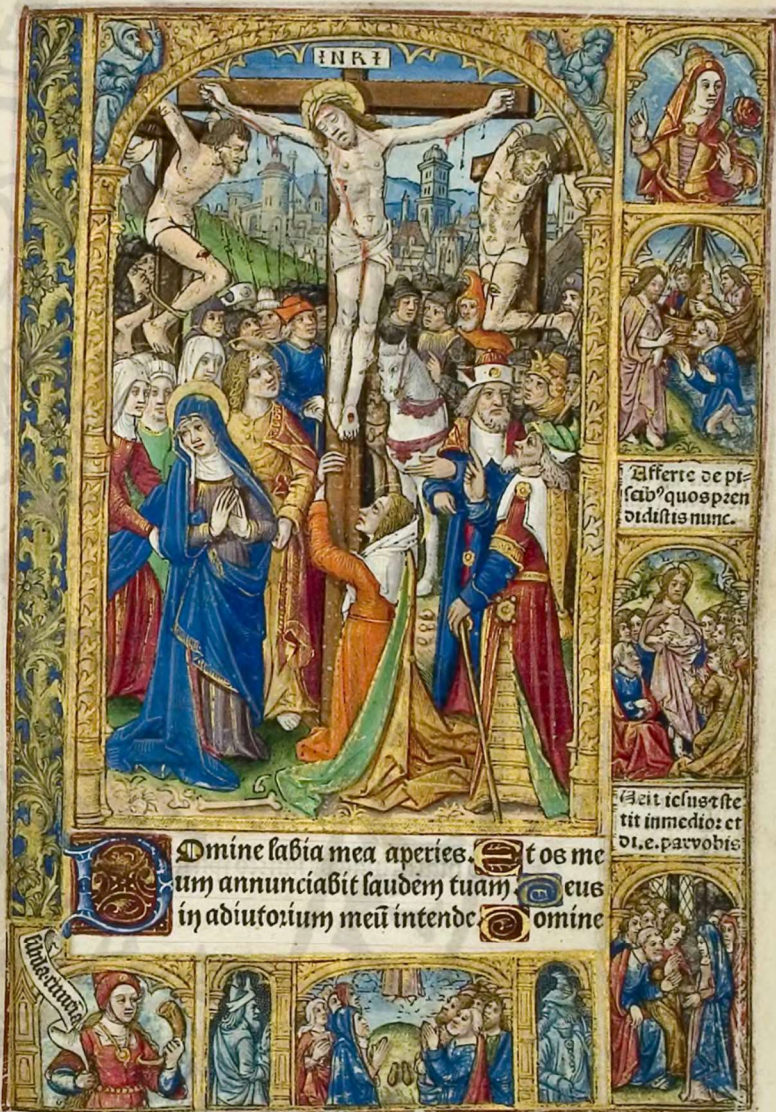 INRI
Afferte de pi=
scibꝰ quos pren
didistis nunc.
ie͛sus⁊ste
tit in medio: et
di.e. pax vobis
Domine labia mea aperies. Et os me
um annunciabit laudem tuam. Deus
in adiutorium meū intende. Domine